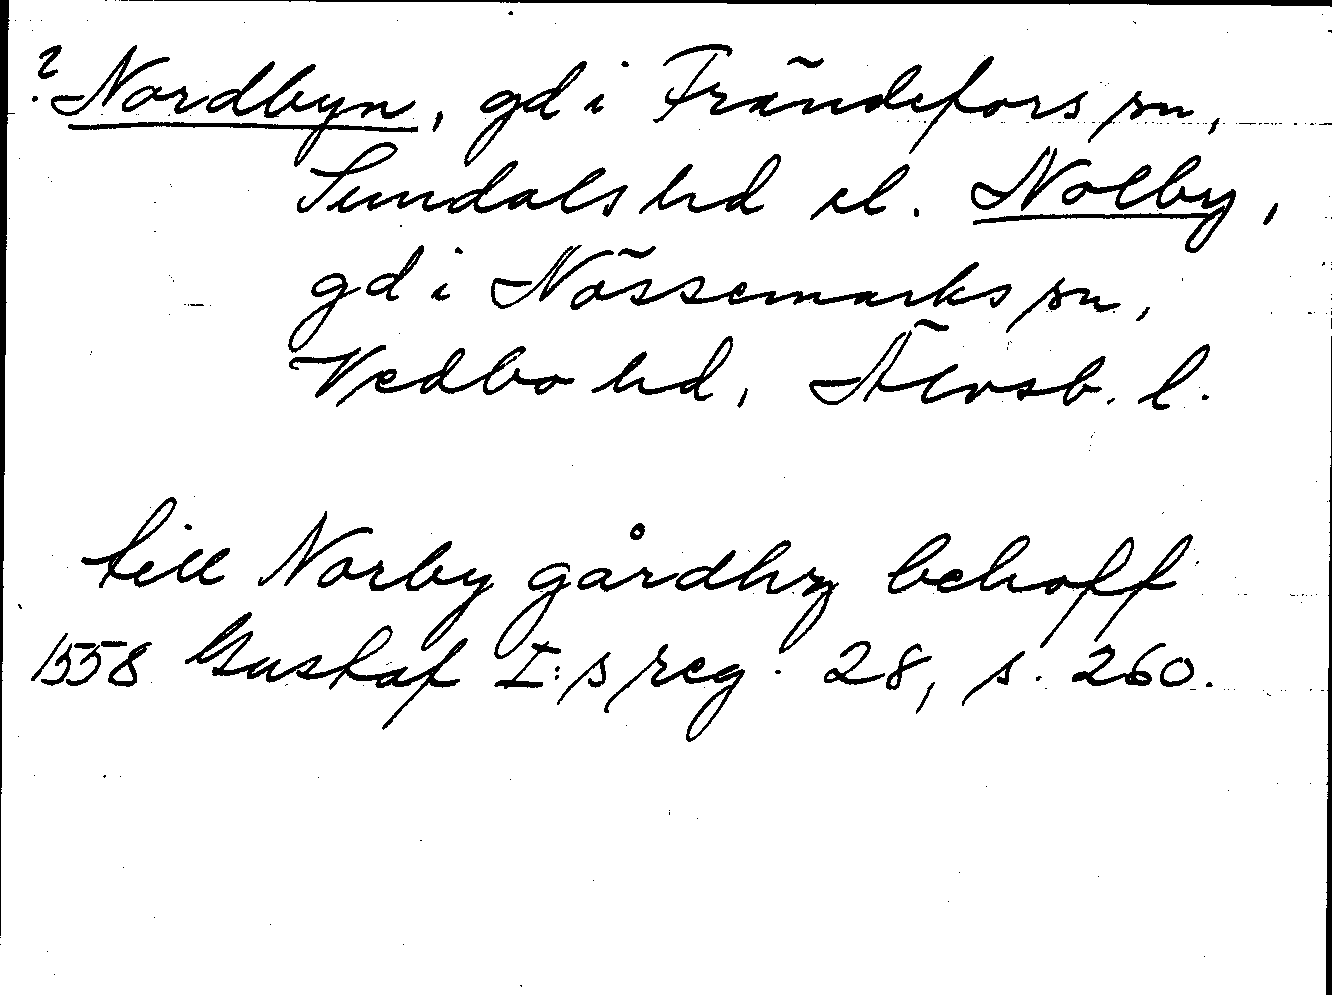 ? Nordbyn, gd i Frändefors sn,
Sundals hd el. Nolby,
gd i Nössemarks sn,
Vedbo hd, Älvsb. l.
till Norby gårdhz behoff
1558 Gustaf I:s reg. 28, s. 260.